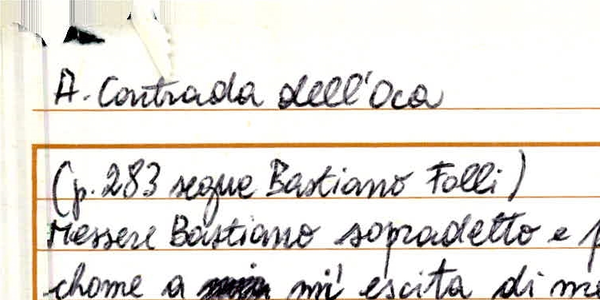 A. Contrada dell'Oca
(p. 283 segue Bastiano Folli)
Messere Bastiano sopradetto e
chome a mi' escita di